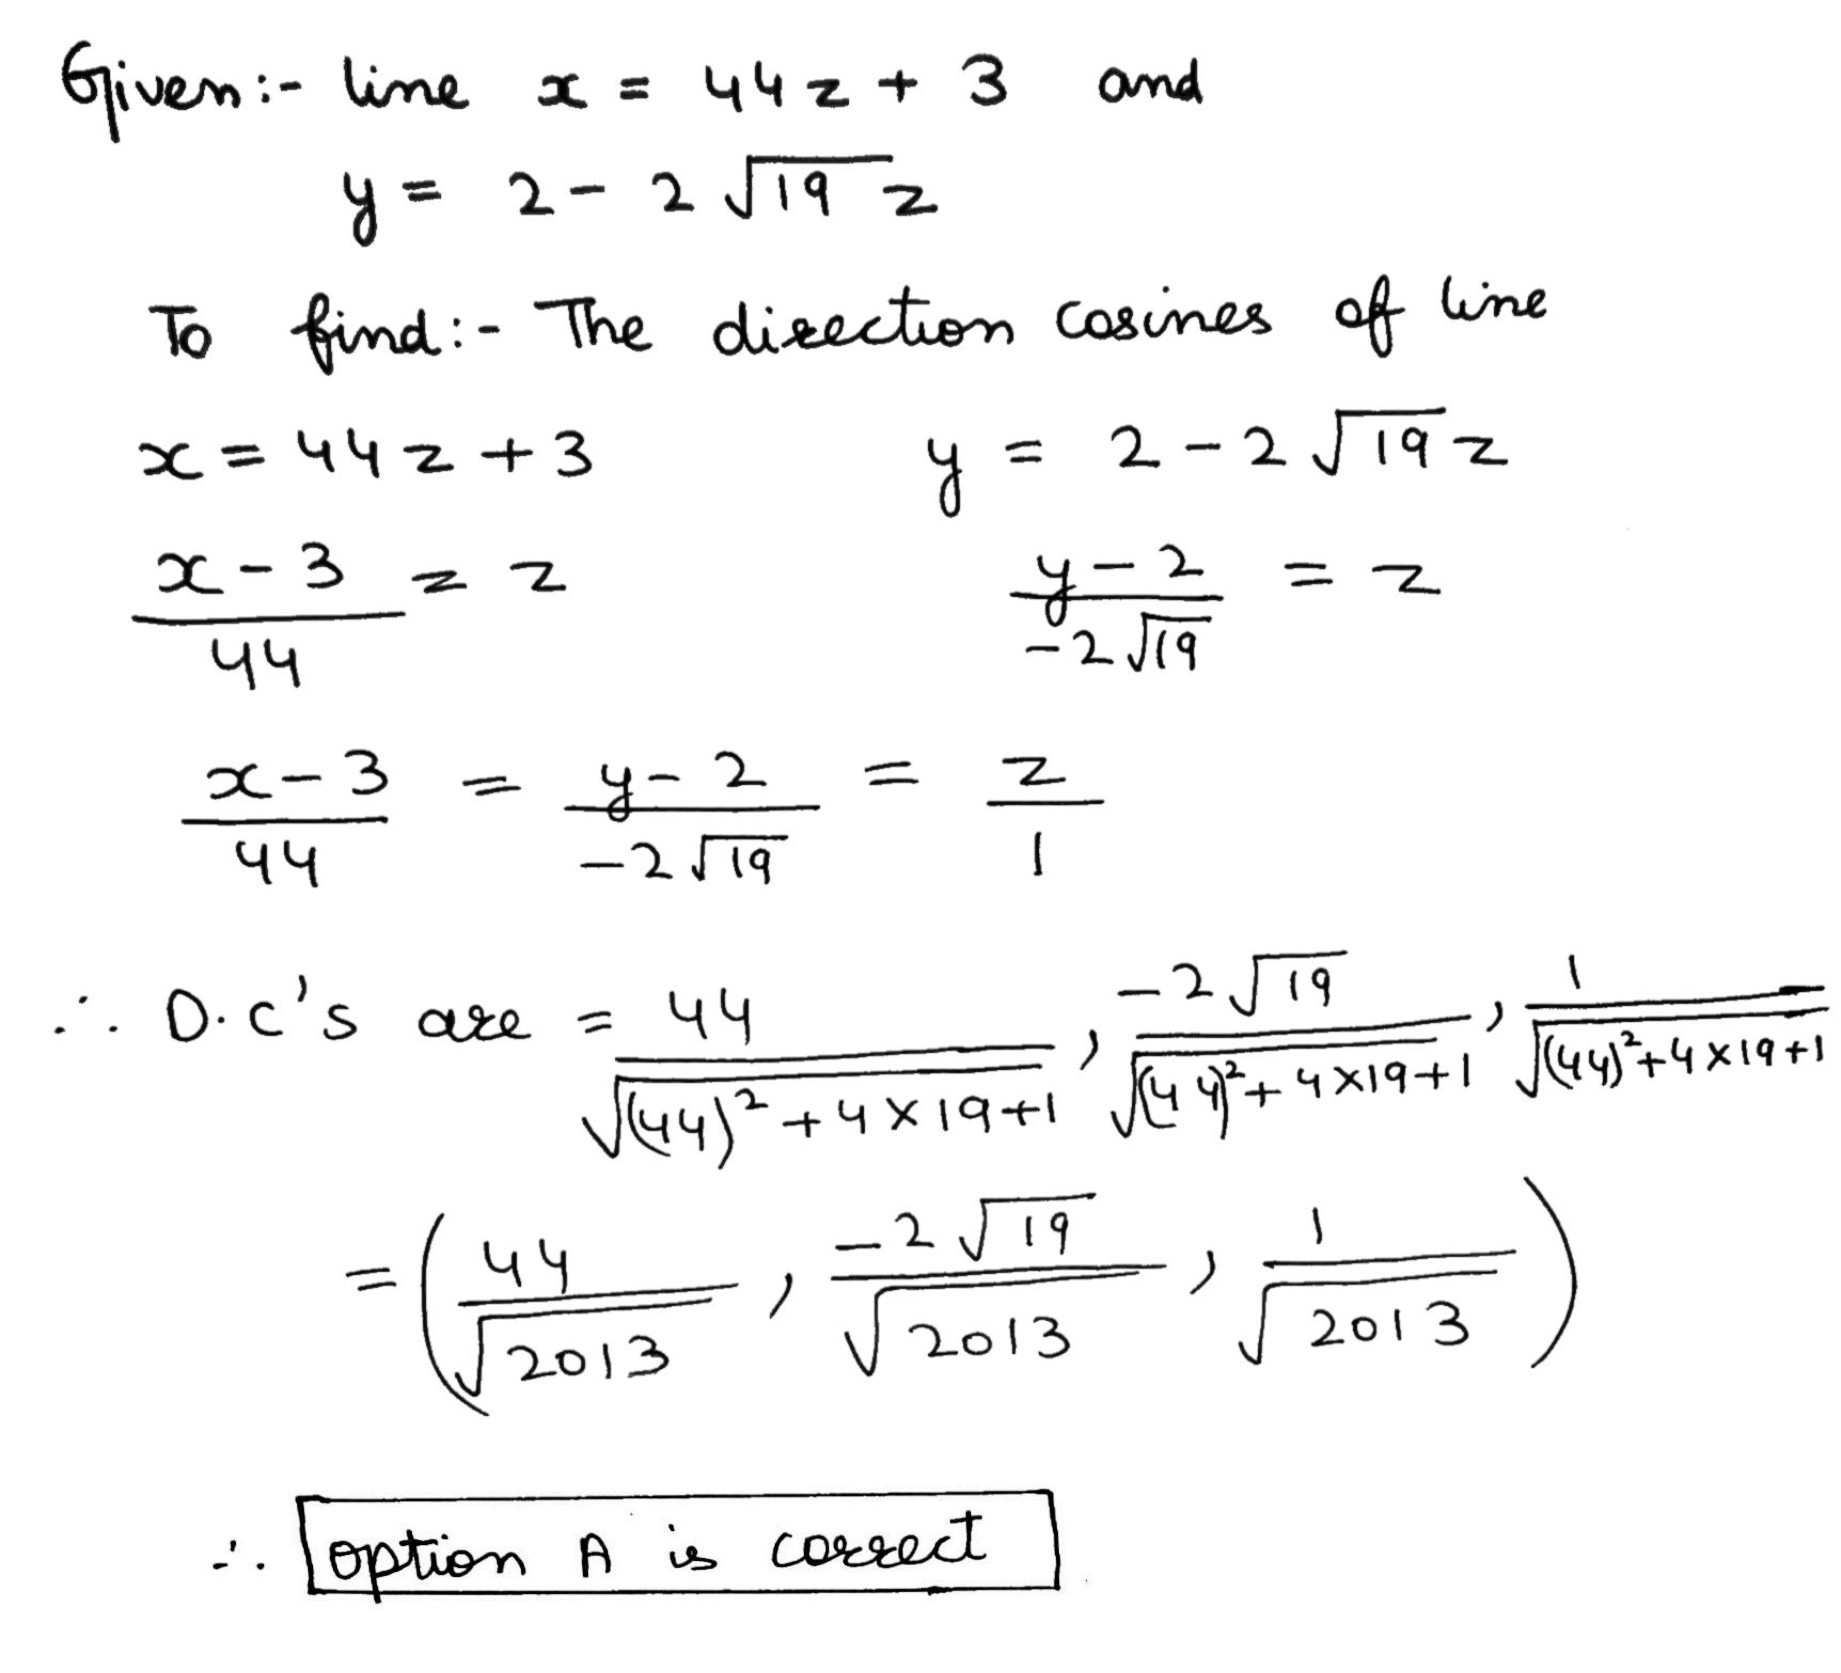 Given:- line x = 44z + 3 and
y = 2 - 2√19 z
To find:- The direction cosines of line
x = 44z + 3 y = 2 - 2√19 z
(x - 3)/44 = z (y - 2)/(-2√19) = z
(x - 3)/44 = (y - 2)/(-2√19) = z/1
∴ D.c's are = 44/√((44)² + 4×19+1) , -2√19/√((44)² + 4×19+1) , 1/√((44)²+4×19+1)
= (44/√2013 , -2√19/√2013 , 1/√2013)
∴ option A is correct